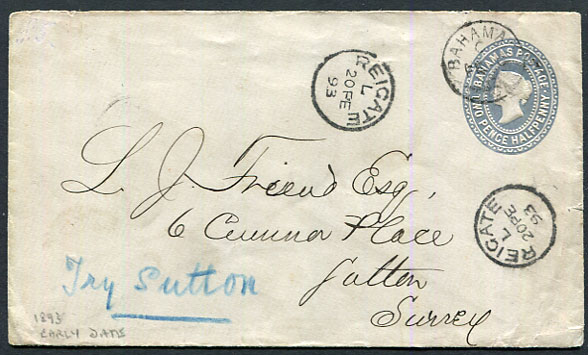 BAHAMA
BAHAMAS POSTAGE
TWO PENCE HALFPENNY
REIGATE
L
20 PE
93
L. J. Friend Esq.
6 Cumnor Place
Sutton
Surrey
REIGATE
L
20 PE
93
Try Sutton
1893
EARLY DATE